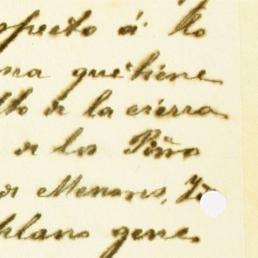 specto á lo
na que tiene
lto de la cierra
a de los Piño
de Menores, Y
plano gene.